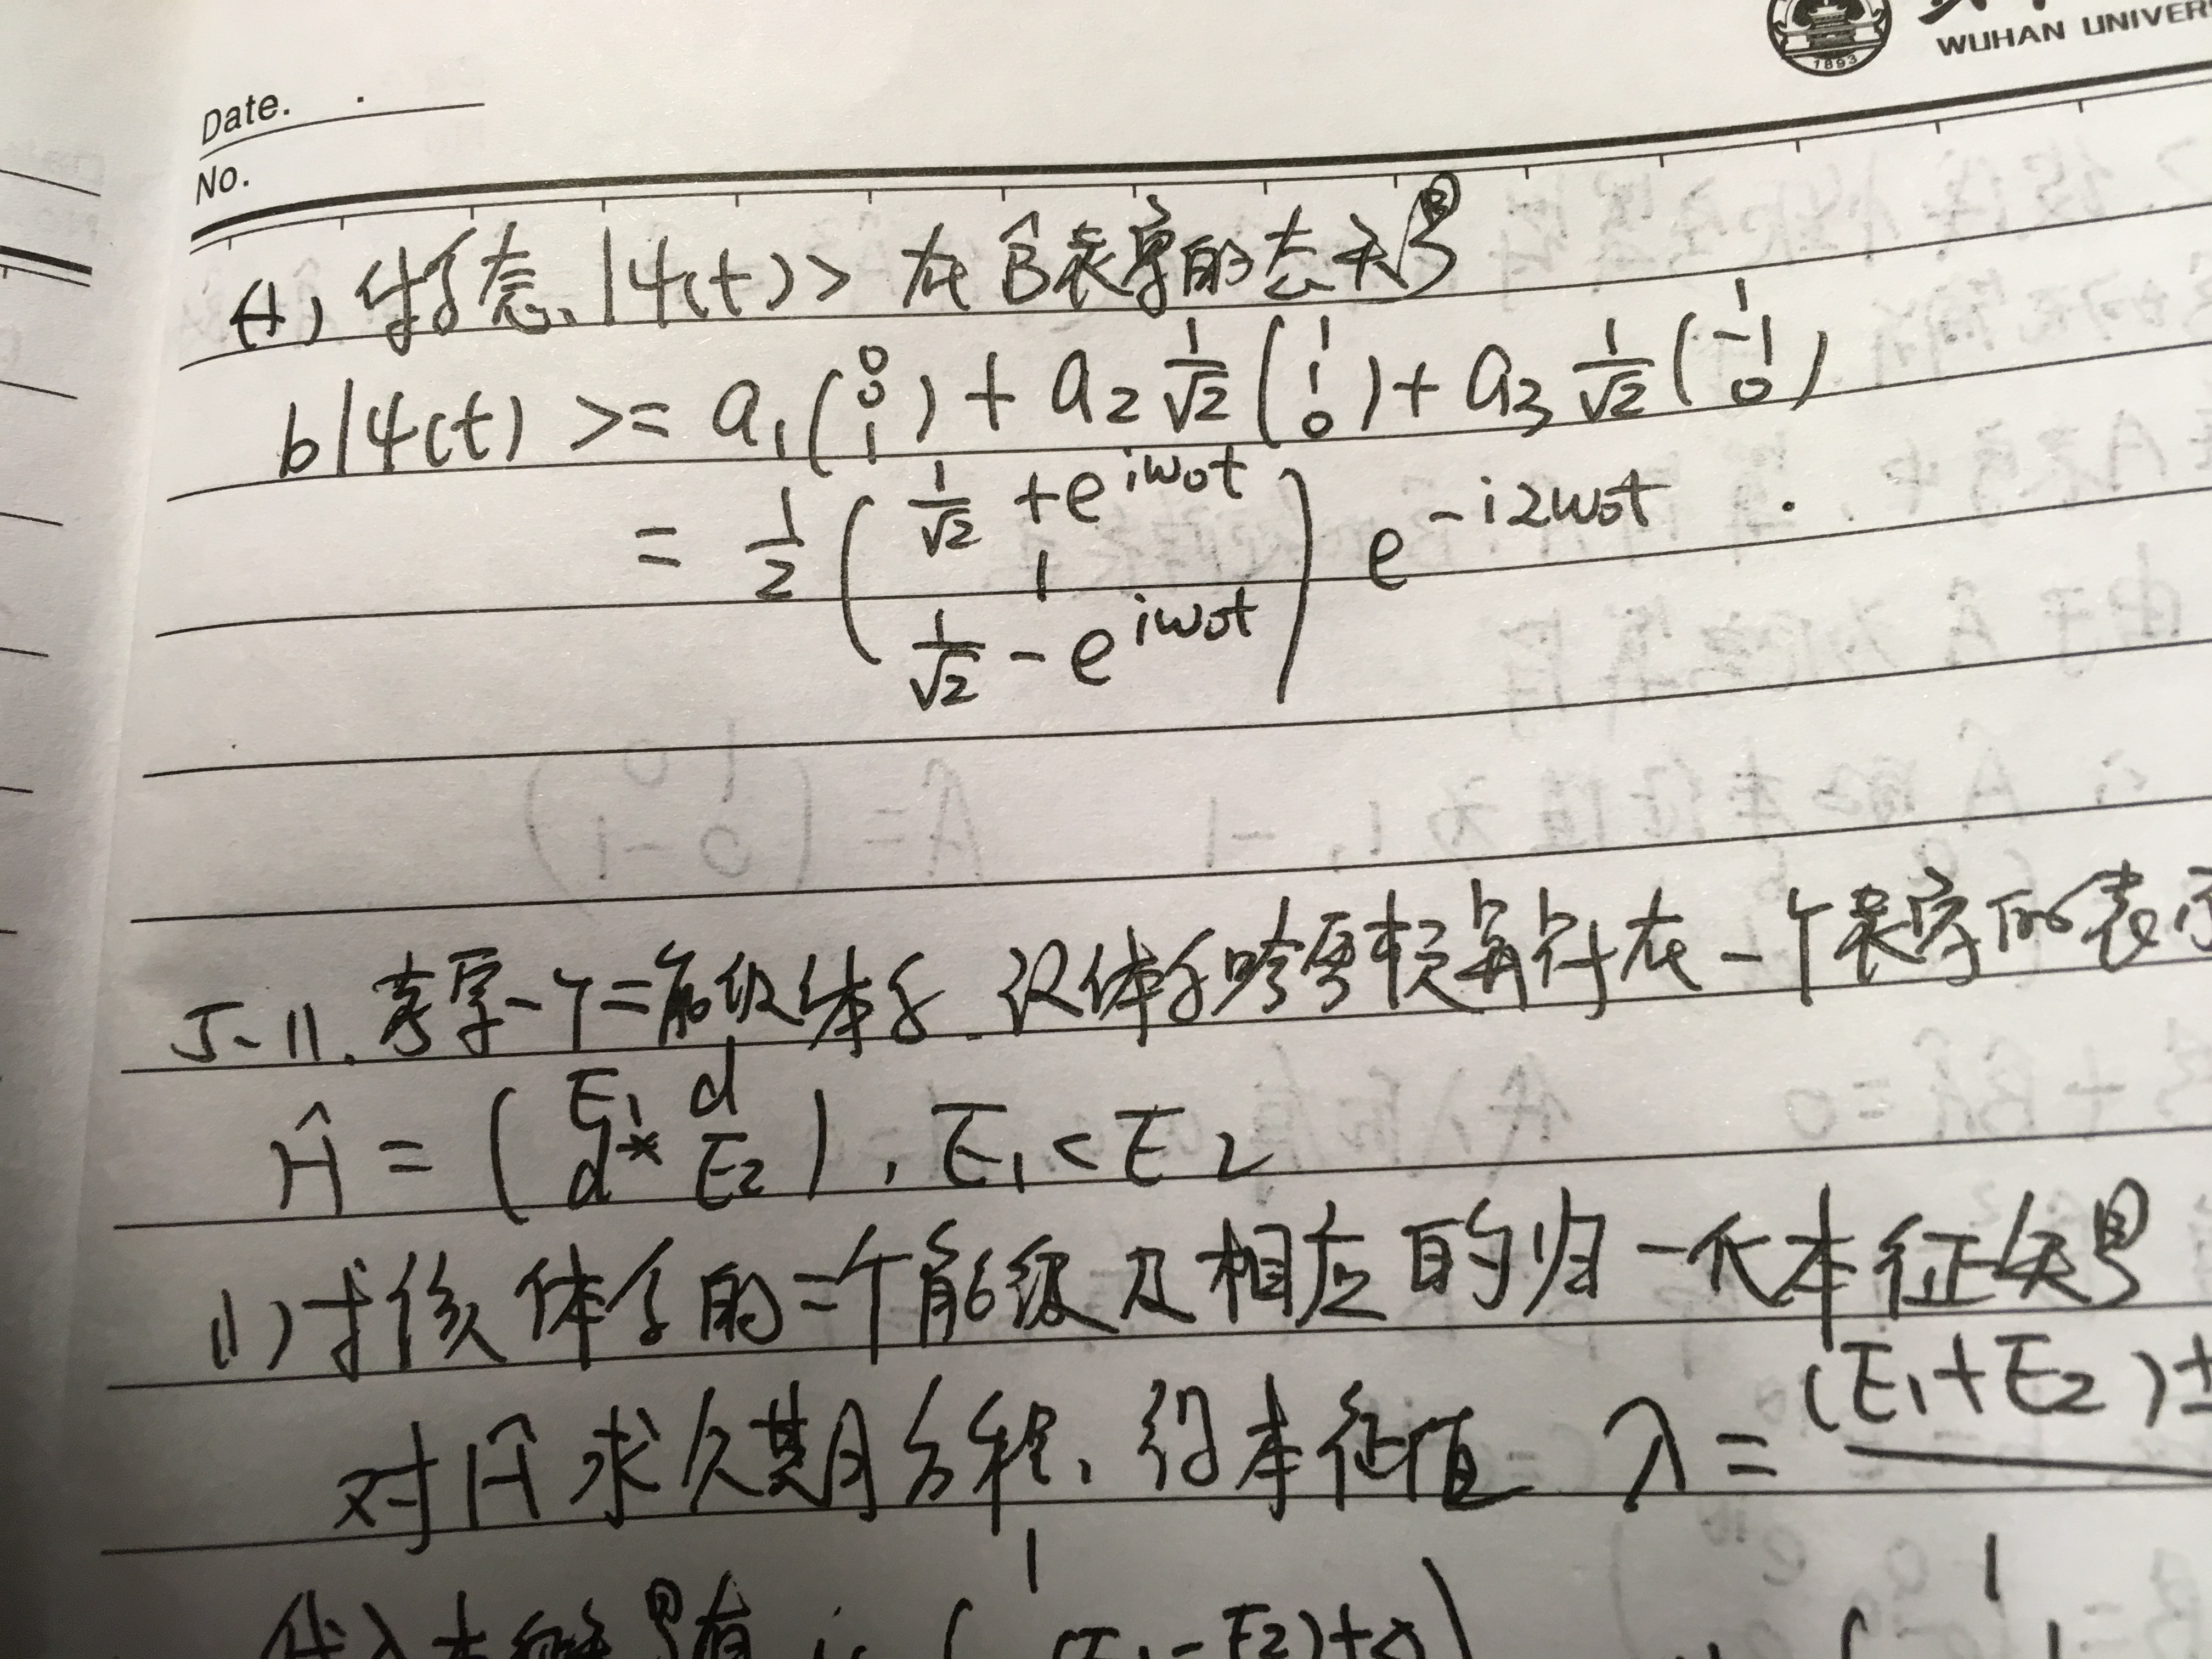 WUHAN UNIVER
1893
Date.
No.
(4) 体系态 |ψ(t)> 在 B̂ 表象的态矢量
b|ψ(t)> = a₁(0 0 1) + a₂ 1/√2 (1 1 0) + a₃ 1/√2 (1 -1 0)
= 1/2 (1/√2 + e^{iω₀t} 1 1/√2 - e^{iω₀t}) e^{-i2ω₀t}
5-11. 考虑一个二能级体系. 设体系哈密顿算符在一个表象的表示
Ĥ = (E₁ d d* E₂), E₁ < E₂
(1) 求该体系的二个能级及相应的归一化本征矢量
对 Ĥ 求久期方程, 得本征值 λ = (E₁+E₂)±
1 1
代入本 有 (E₁-E₂)+